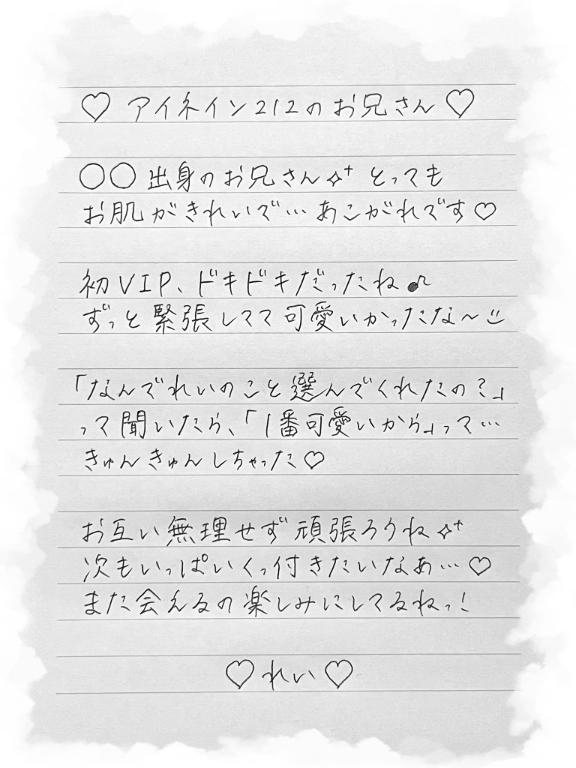 ♡ アイネイン212のお兄さん ♡
○○ 出身のお兄さん✧⁺ とっても
お肌がきれいで…あこがれです♡
初VIP、ドキドキだったね♪
ずっと緊張してて可愛いかったな〜☺
「なんでれいのこと選んでくれたの?」
って聞いたら、「1番可愛いから」って…
きゅんきゅんしちゃった♡
お互い無理せず頑張ろうね✧⁺
次もいっぱいくっ付きたいなぁ…♡
また会えるの楽しみにしてるねっ!
♡れい♡